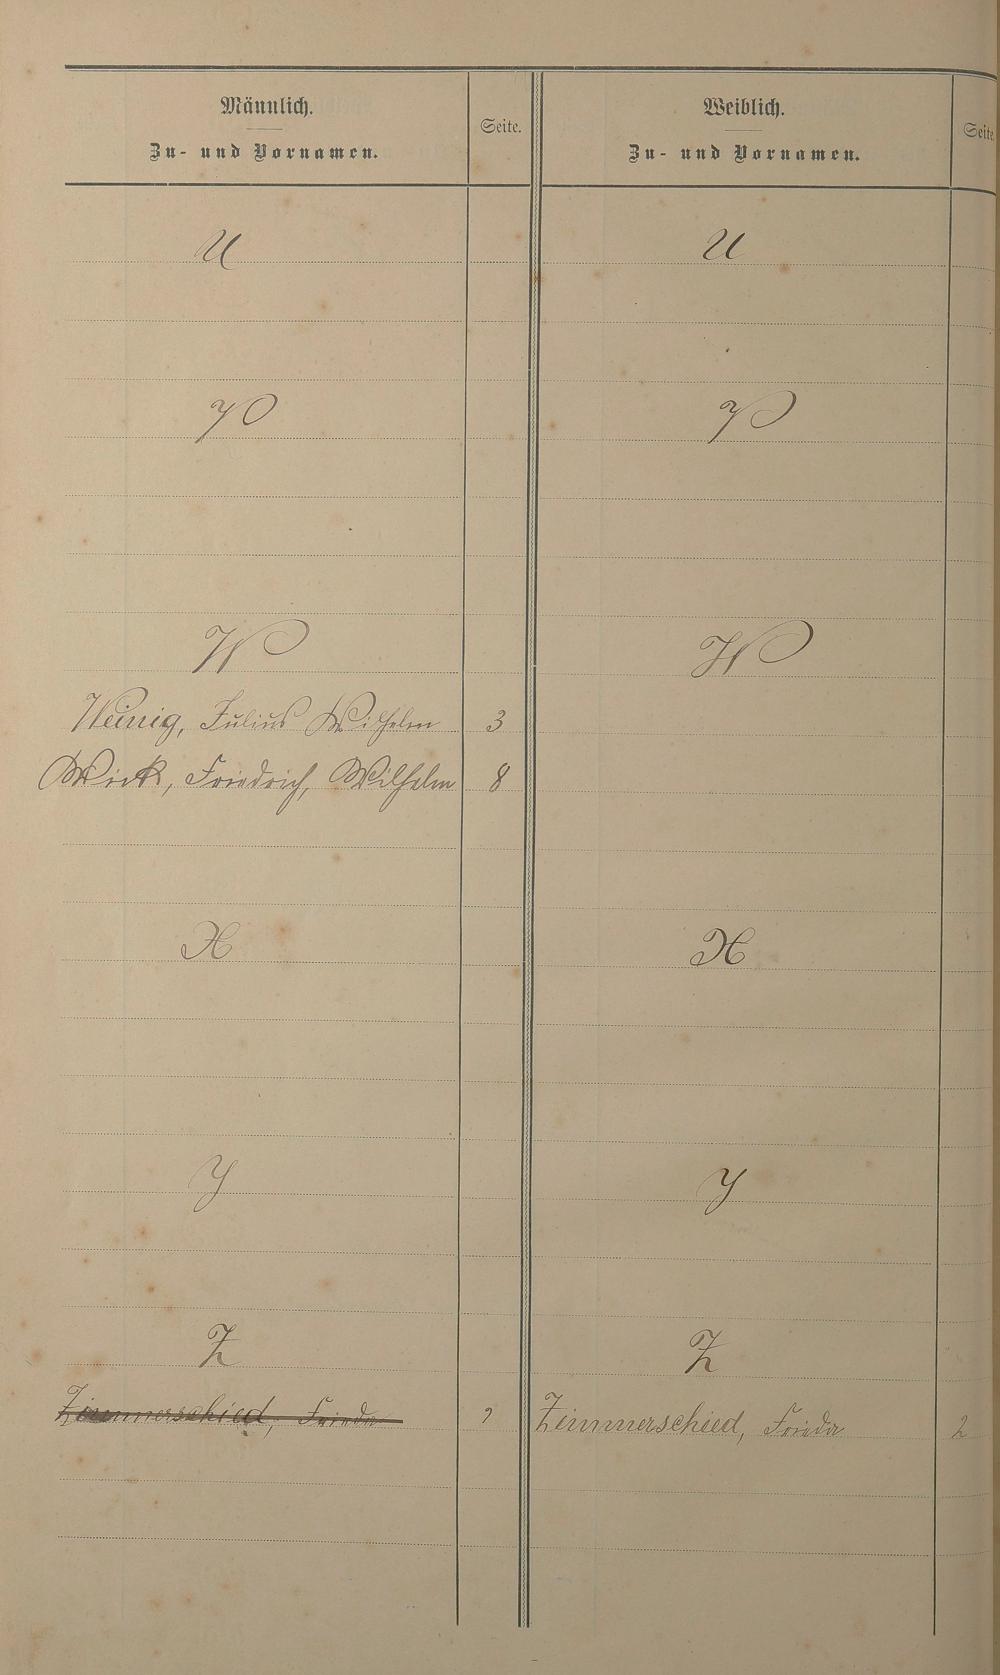 Männlich.
Zu- und Vornamen.
Seite.
Weiblich.
Zu- und Vornamen.
Seite
U
U
V
V
W
W
Weinig, Julius Wilhelm 3
Wick, Friedrich, Wilhelm 8
X
X
Y
Y
Z
Z
Zimmerschied, Frieda
Zimmerschied, Frieda 2